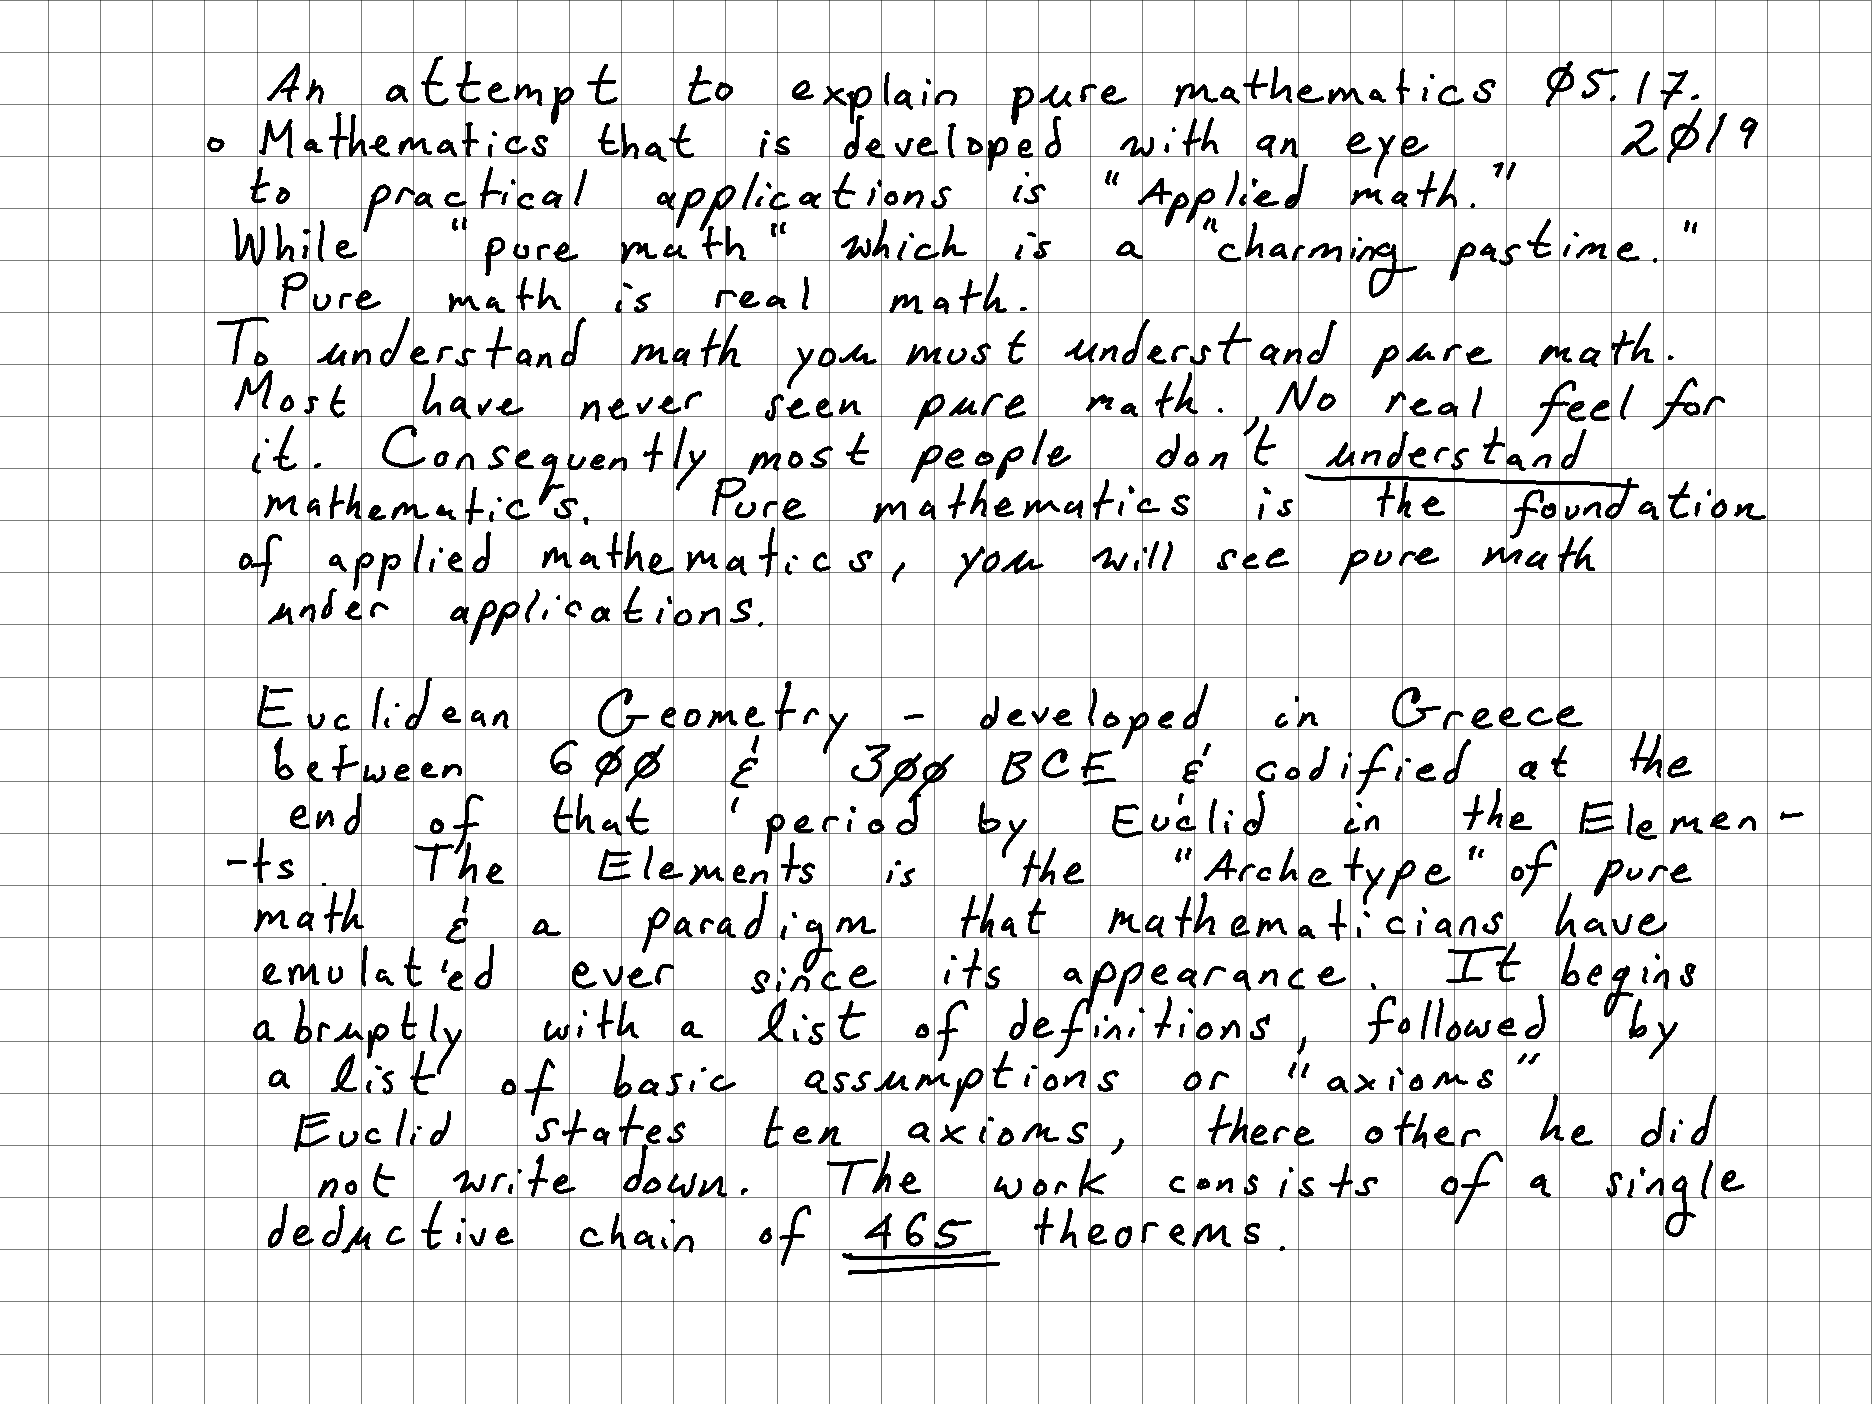 An attempt to explain pure mathematics Ø5.17.
2Ø19
o Mathematics that is developed with an eye
to practical applications is "Applied math."
While "pure math" which is a "charming pastime."
Pure math is real math.
To understand math you must understand pure math.
Most have never seen pure math. No real feel for
it. Consequently most people don't understand
mathematic's. Pure mathematics is the foundation
of applied mathematics, you will see pure math
under applications.
Euclidean Geometry - developed in Greece
between 6ØØ & 3ØØ BCE & codified at the
end of that period by Euclid in the Elemen-
-ts. The Elements is the "Archetype" of pure
math & a paradigm that mathematicians have
emulated ever since its appearance. It begins
abruptly with a list of definitions, followed by
a list of basic assumptions or "axioms"
Euclid states ten axioms, there other he did
not write down. The work consists of a single
deductive chain of 465 theorems.